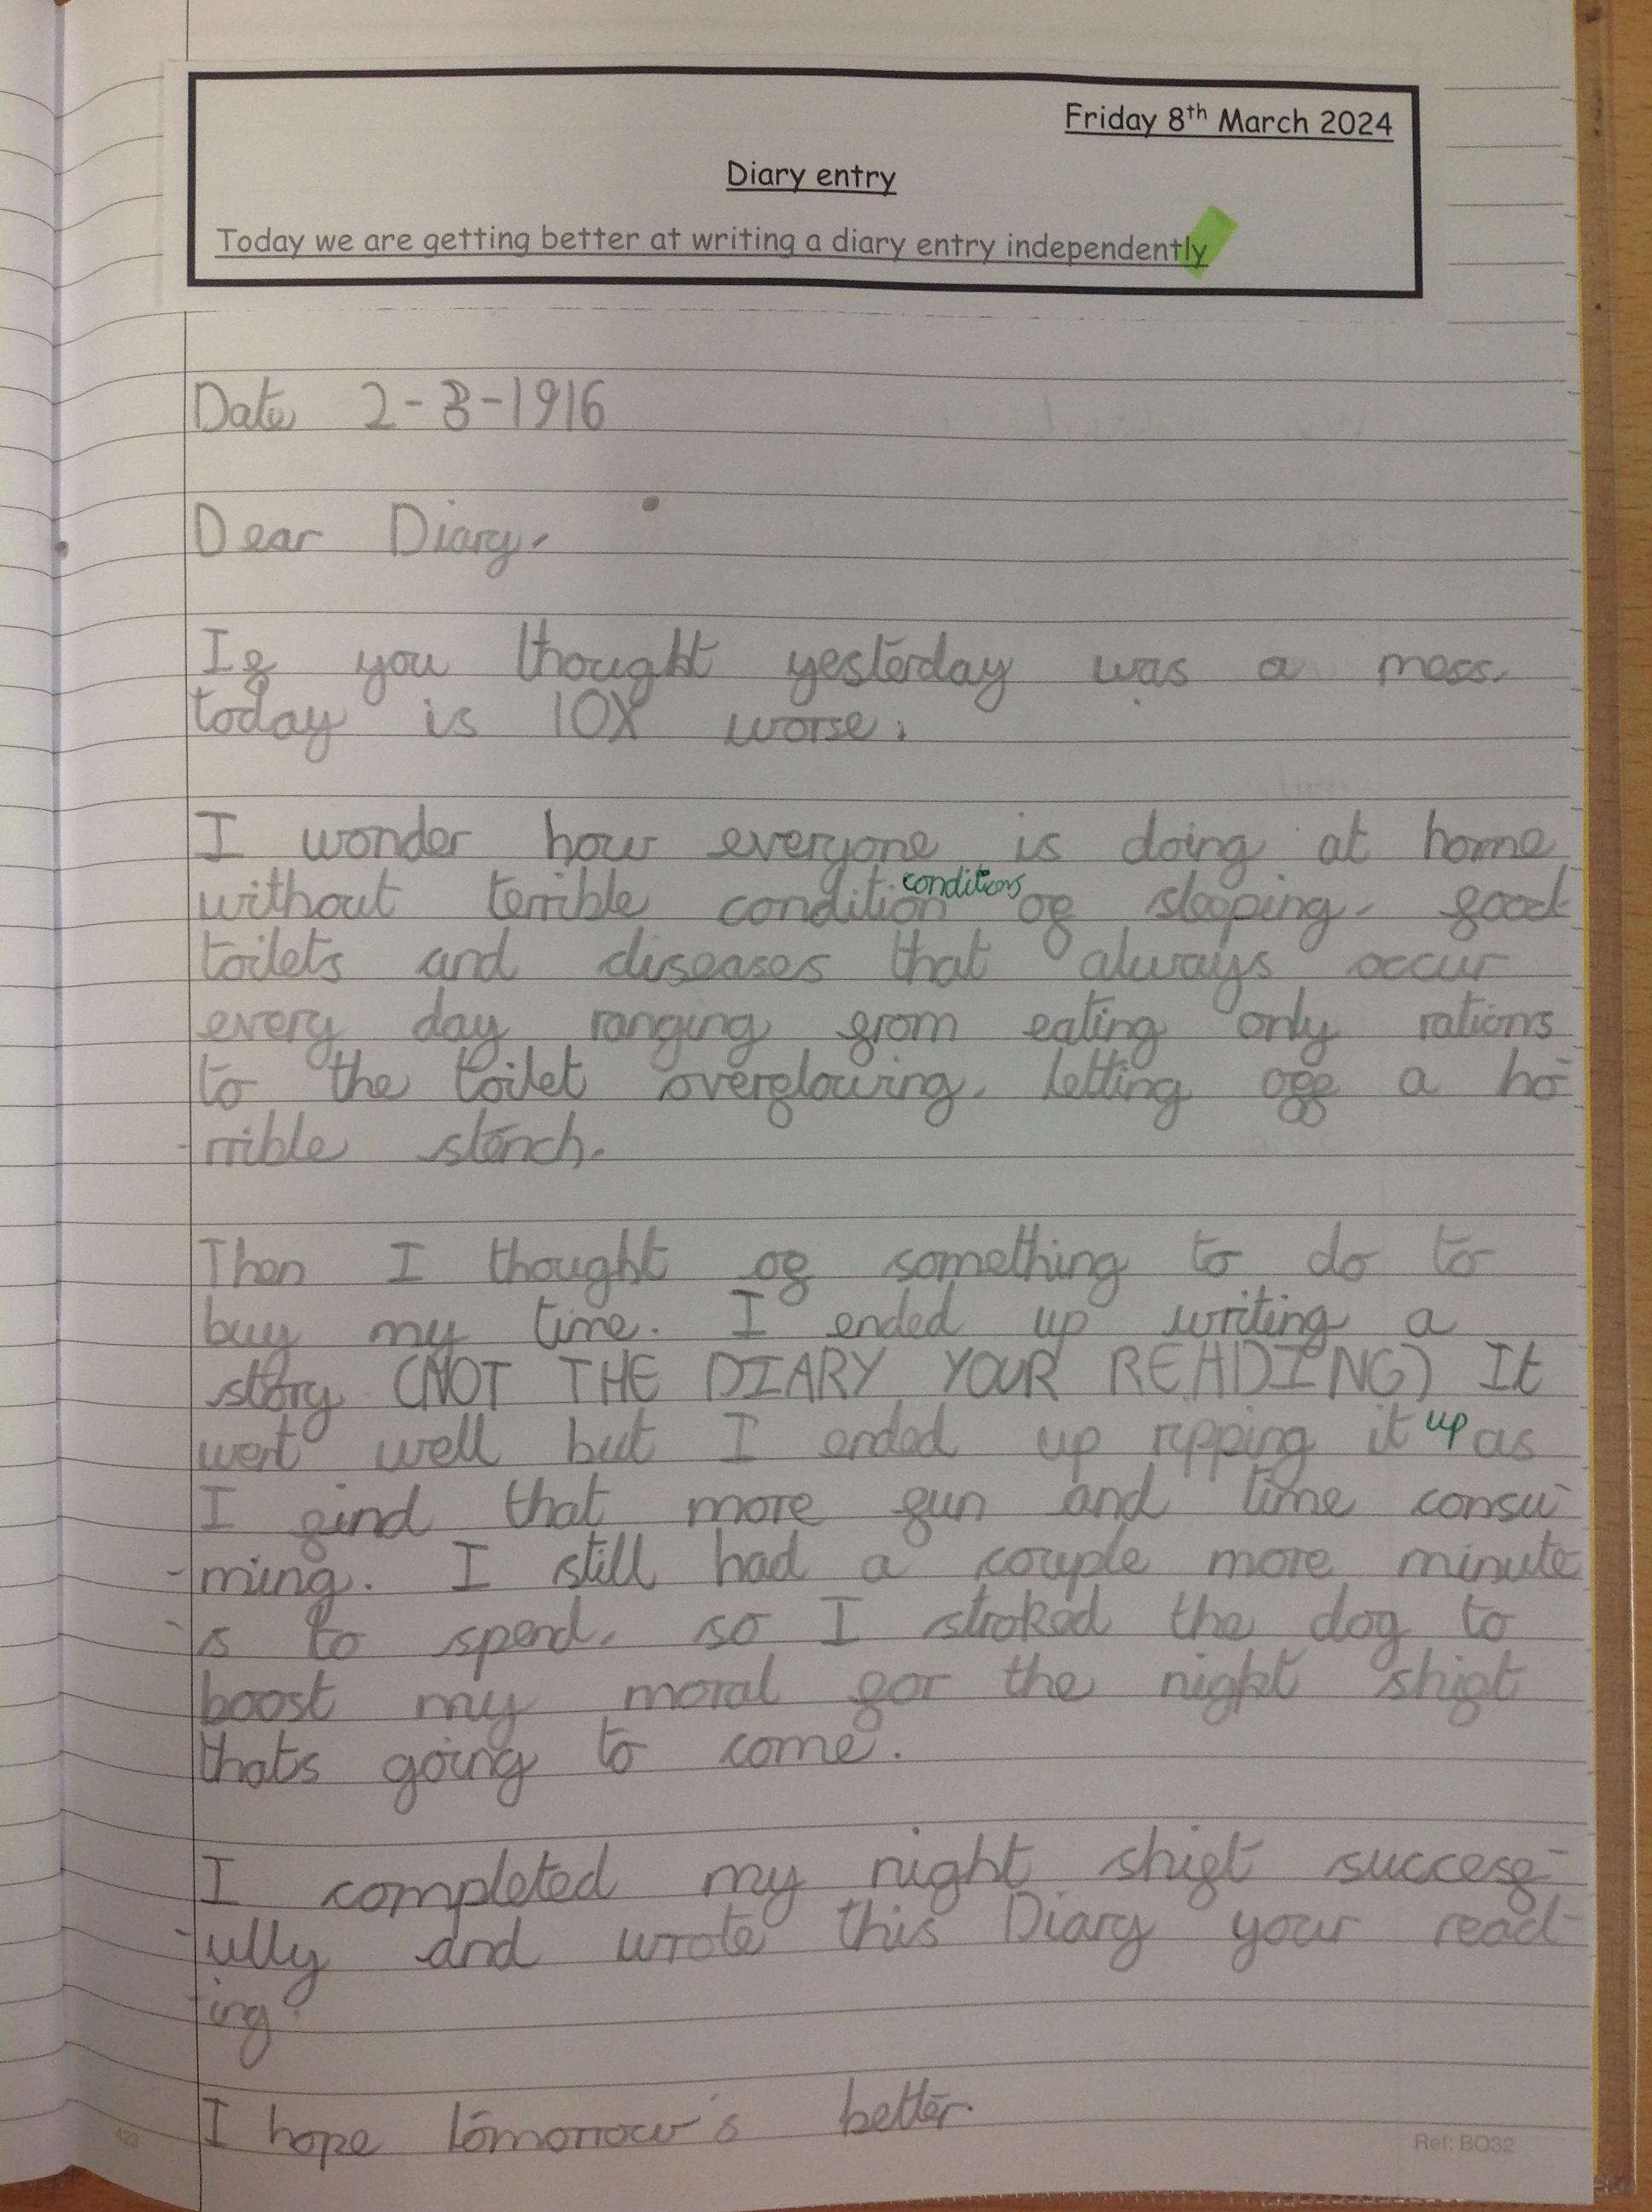 Friday 8th March 2024
Diary entry
Today we are getting better at writing a diary entry independently
Date 2-3-1916
Dear Diary,
If you thought yesterday was a mess,
today is 10X worse.
I wonder how everyone is doing at home
without terrible condition conditions of sleeping, good
toilets and diseases that always occur
every day ranging from eating only rations
to the toilet overflowing, letting off a ho-
-rrible stench.
Then I thought of something to do to
buy my time. I ended up writing a
story (NOT THE DIARY YOUR READING) It
went well but I ended up ripping it up as
I find that more fun and time consu-
-ming. I still had a couple more minute
-s to spend, so I stroked the dog to
boost my moral for the night shift
thats going to come.
I completed my night shift succesf-
-ully and wrote this Diary your read-
-ing.
I hope tomorrow's better.
423
Ref: BO32